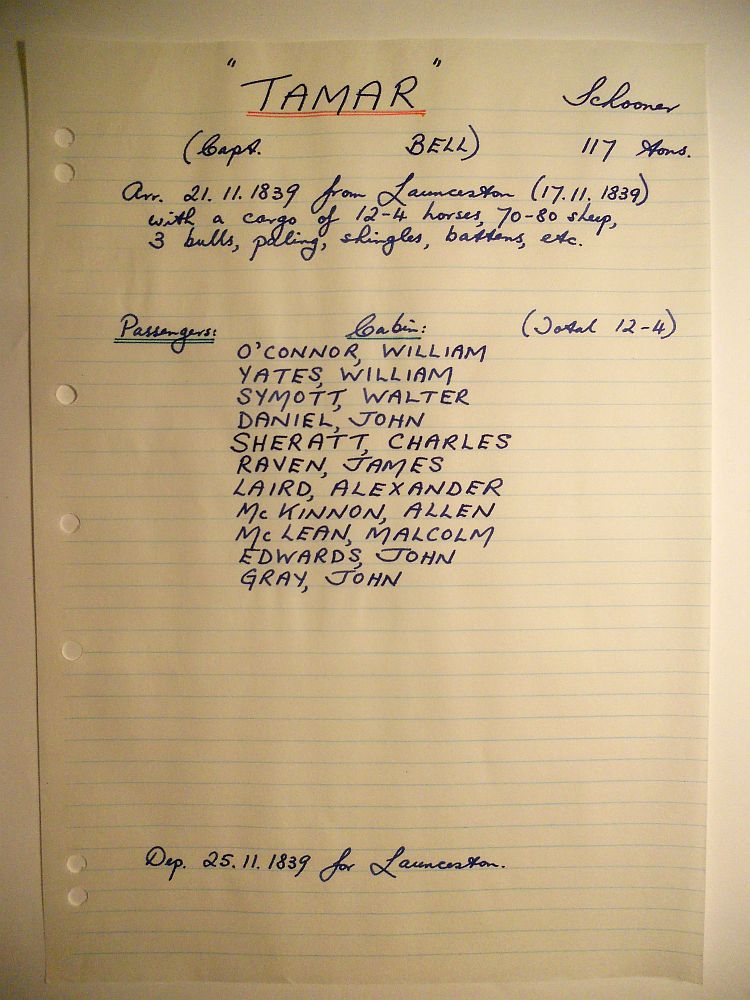 "TAMAR" Schooner
(Capt. BELL) 117 tons.
Arr. 21.11.1839 from Launceston (17.11.1839)
with a cargo of 12-4 horses, 70-80 sheep,
3 bulls, paling, shingles, battens, etc.
Passengers: Cabin: (Total 12-4)
O'CONNOR, WILLIAM
YATES, WILLIAM
SYMOTT, WALTER
DANIEL, JOHN
SHERATT, CHARLES
RAVEN, JAMES
LAIRD, ALEXANDER
McKINNON, ALLEN
McLEAN, MALCOLM
EDWARDS, JOHN
GRAY, JOHN
Dep. 25.11.1839 for Launceston.